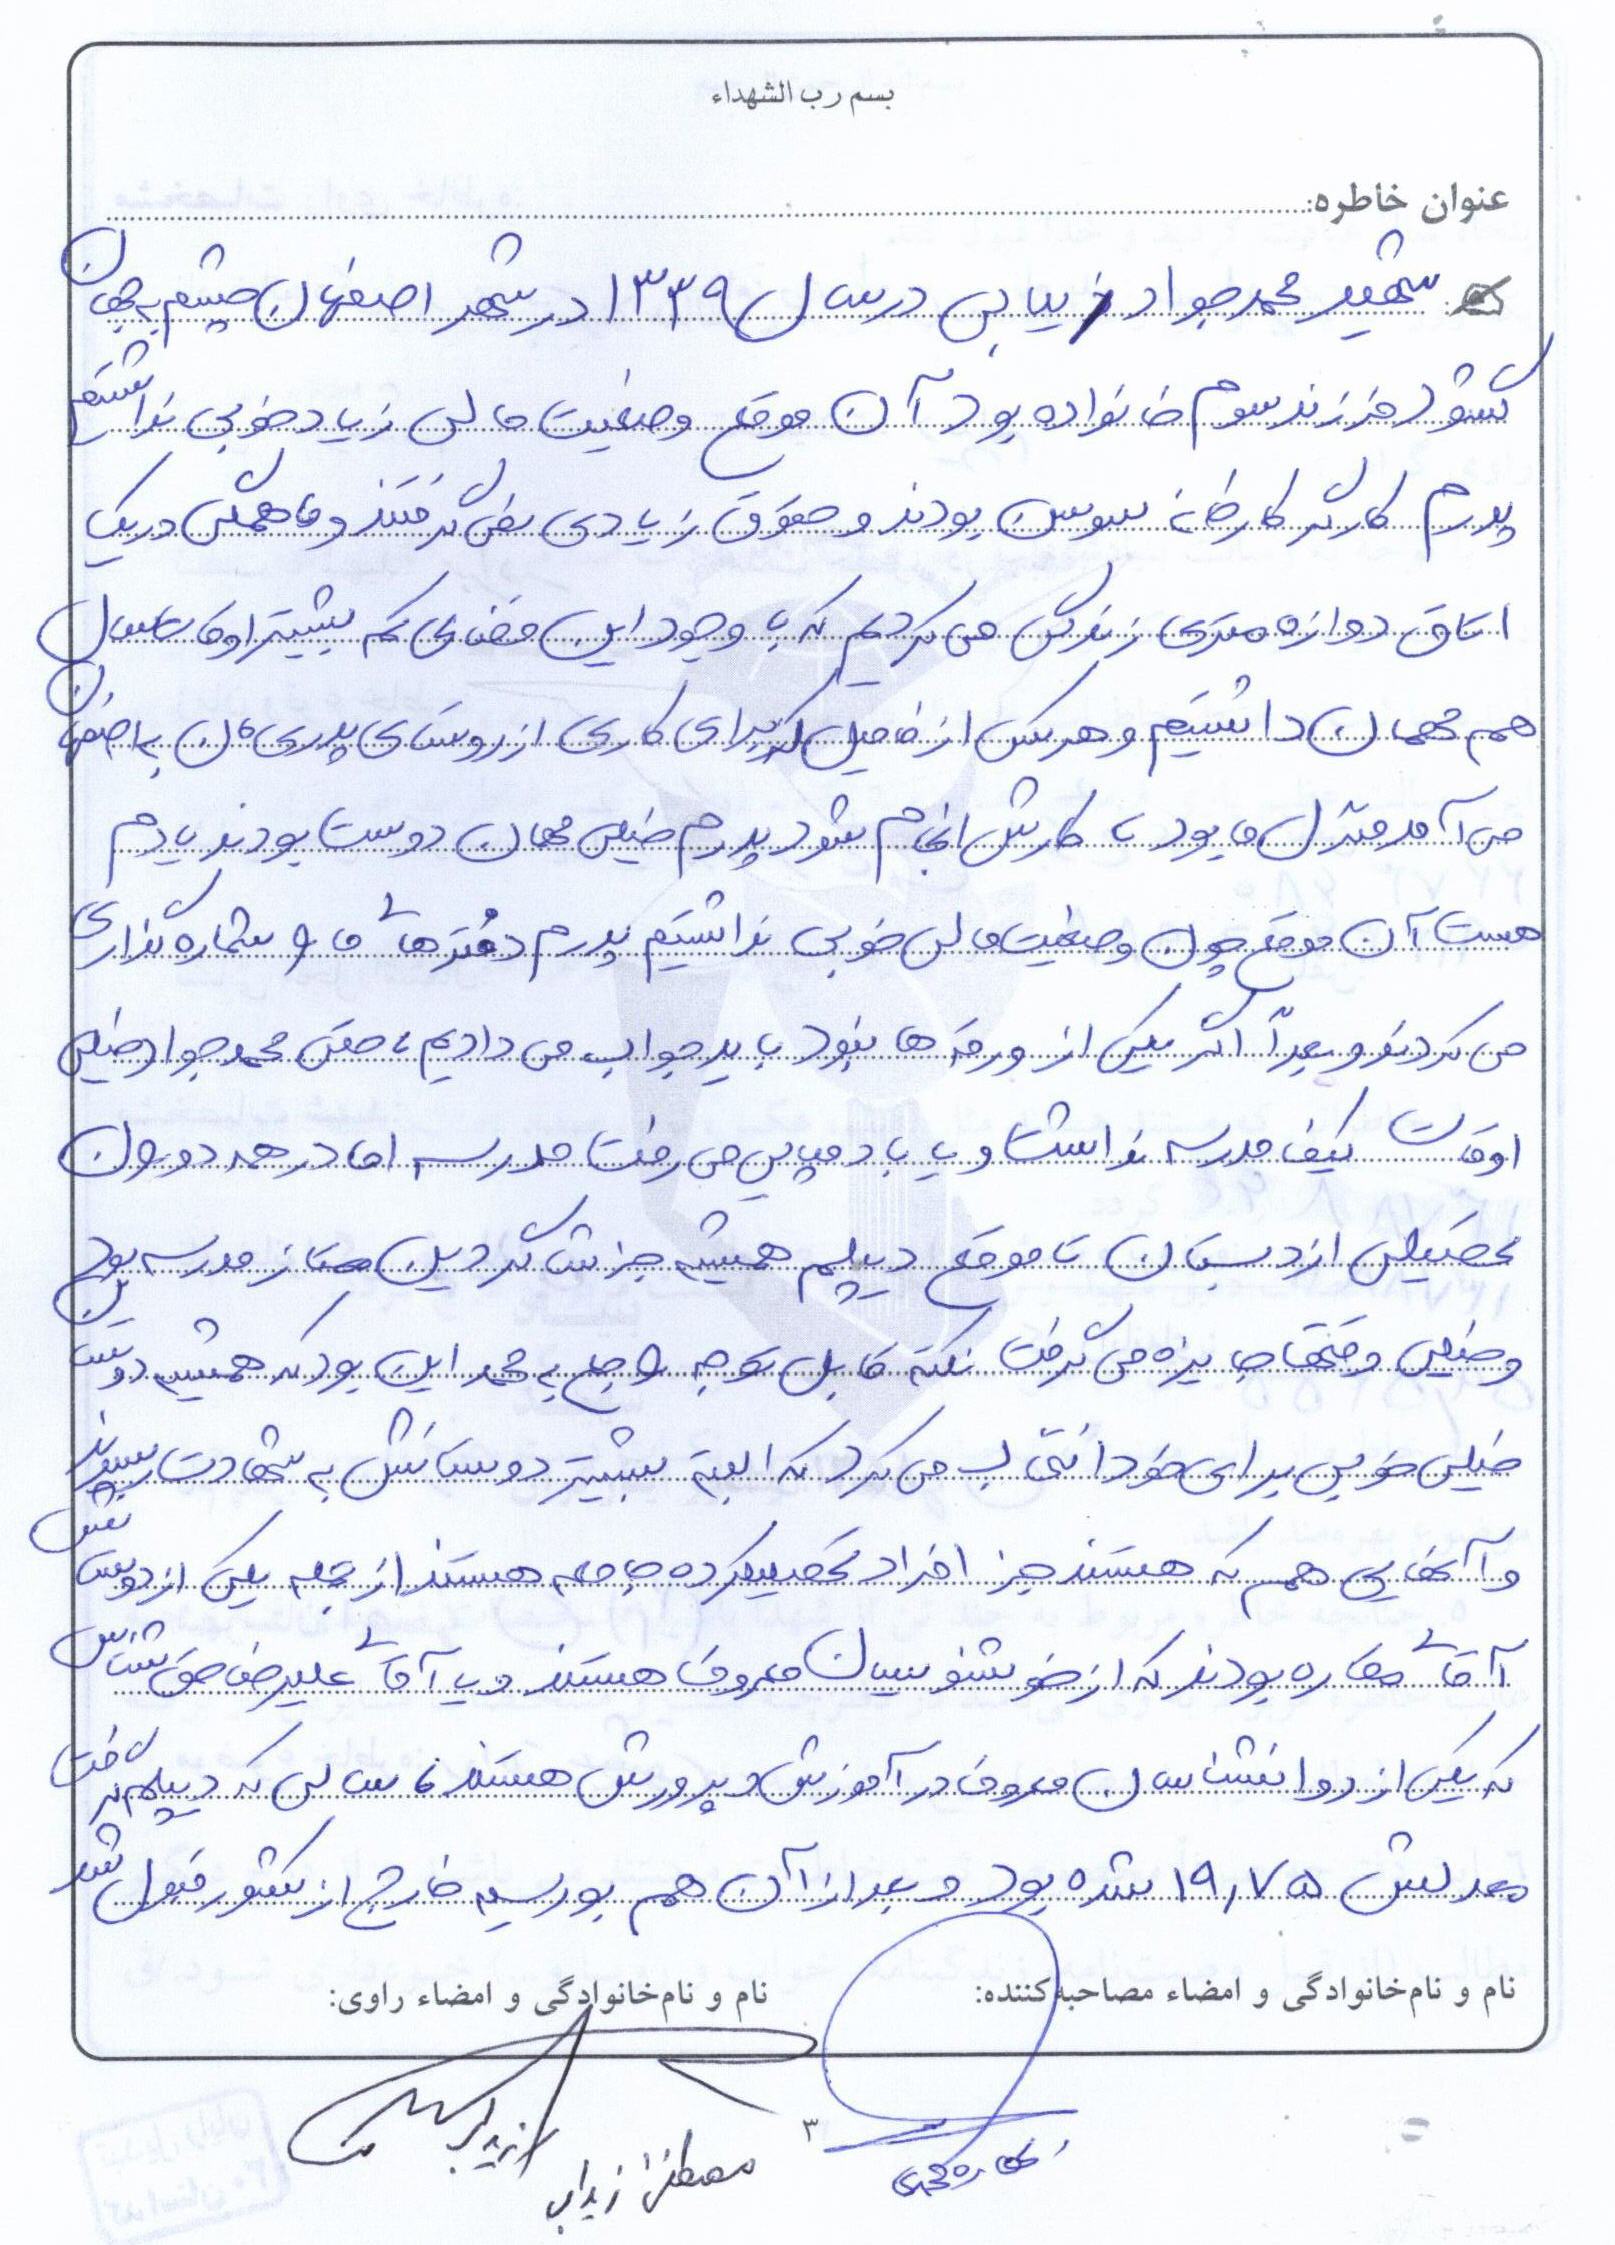 بسم رب الشهداء
عنوان خاطره:
شهید محمد جواد زیبایی در سال ۱۳۳۹ در شهر اصفهان چشم به جهان
گشود فرزند سوم خانواده بود آن موقع وضعیت مالی زیاد خوبی نداشتیم
پدرم کارگر کارخانه بودند و حقوق زیادی نمی گرفتند و ما همگی در یک
اتاق دوازه متری زندگی می کردیم که با وجود این فضای کم بیشتر اوقات سال
هم مهمان داشتیم و هر کس از فامیل برای کاری از روستای پدری مان به اصفهان
می آمد منزل ما بود تا کارش انجام شود پدرم خیلی مهمان دوست بودند یادم
هست آن موقع چون وضعیت مالی خوبی نداشتیم پدرم دفترهای ما را شماره گذاری
می کردند و بعداً اگر یکی از ورقه ها نبود باید جواب می دادیم، حتی محمد جواد خیلی
اوقات کیف مدرسه نداشت و یا با دمپایی می رفت مدرسه اما در همه دوران
تحصیلی از دبستان تا موقع دیپلم همیشه جز شاگردین ممتاز مدرسه بود
و خیلی وقتها جایزه می گرفت نکته قابل توجه راجع به محمد این بود که همیشه دوستان
خیلی خوبی برای خود انتخاب می کرد که البته بیشتر دوستانش به شهادت رسیدند
و آنهایی هم که هستند جز افراد تحصیلکرده جامعه هستند از جمله یکی از دوستانش
آقای بودند که از خوشنویسان معروف هستند و یا آقای علیرضا حق شناس
که یکی از روانشناسان معروف در آموزش و پرورش هستند سالی که دیپلم گرفت
معدلش ۱۹٫۷۵ شده بود و بعد از آن هم بورسیه خارج از کشور قبول شد
نام و نام‌خانوادگی و امضاء مصاحبه‌کننده:
نام و نام‌خانوادگی و امضاء راوی:
۳